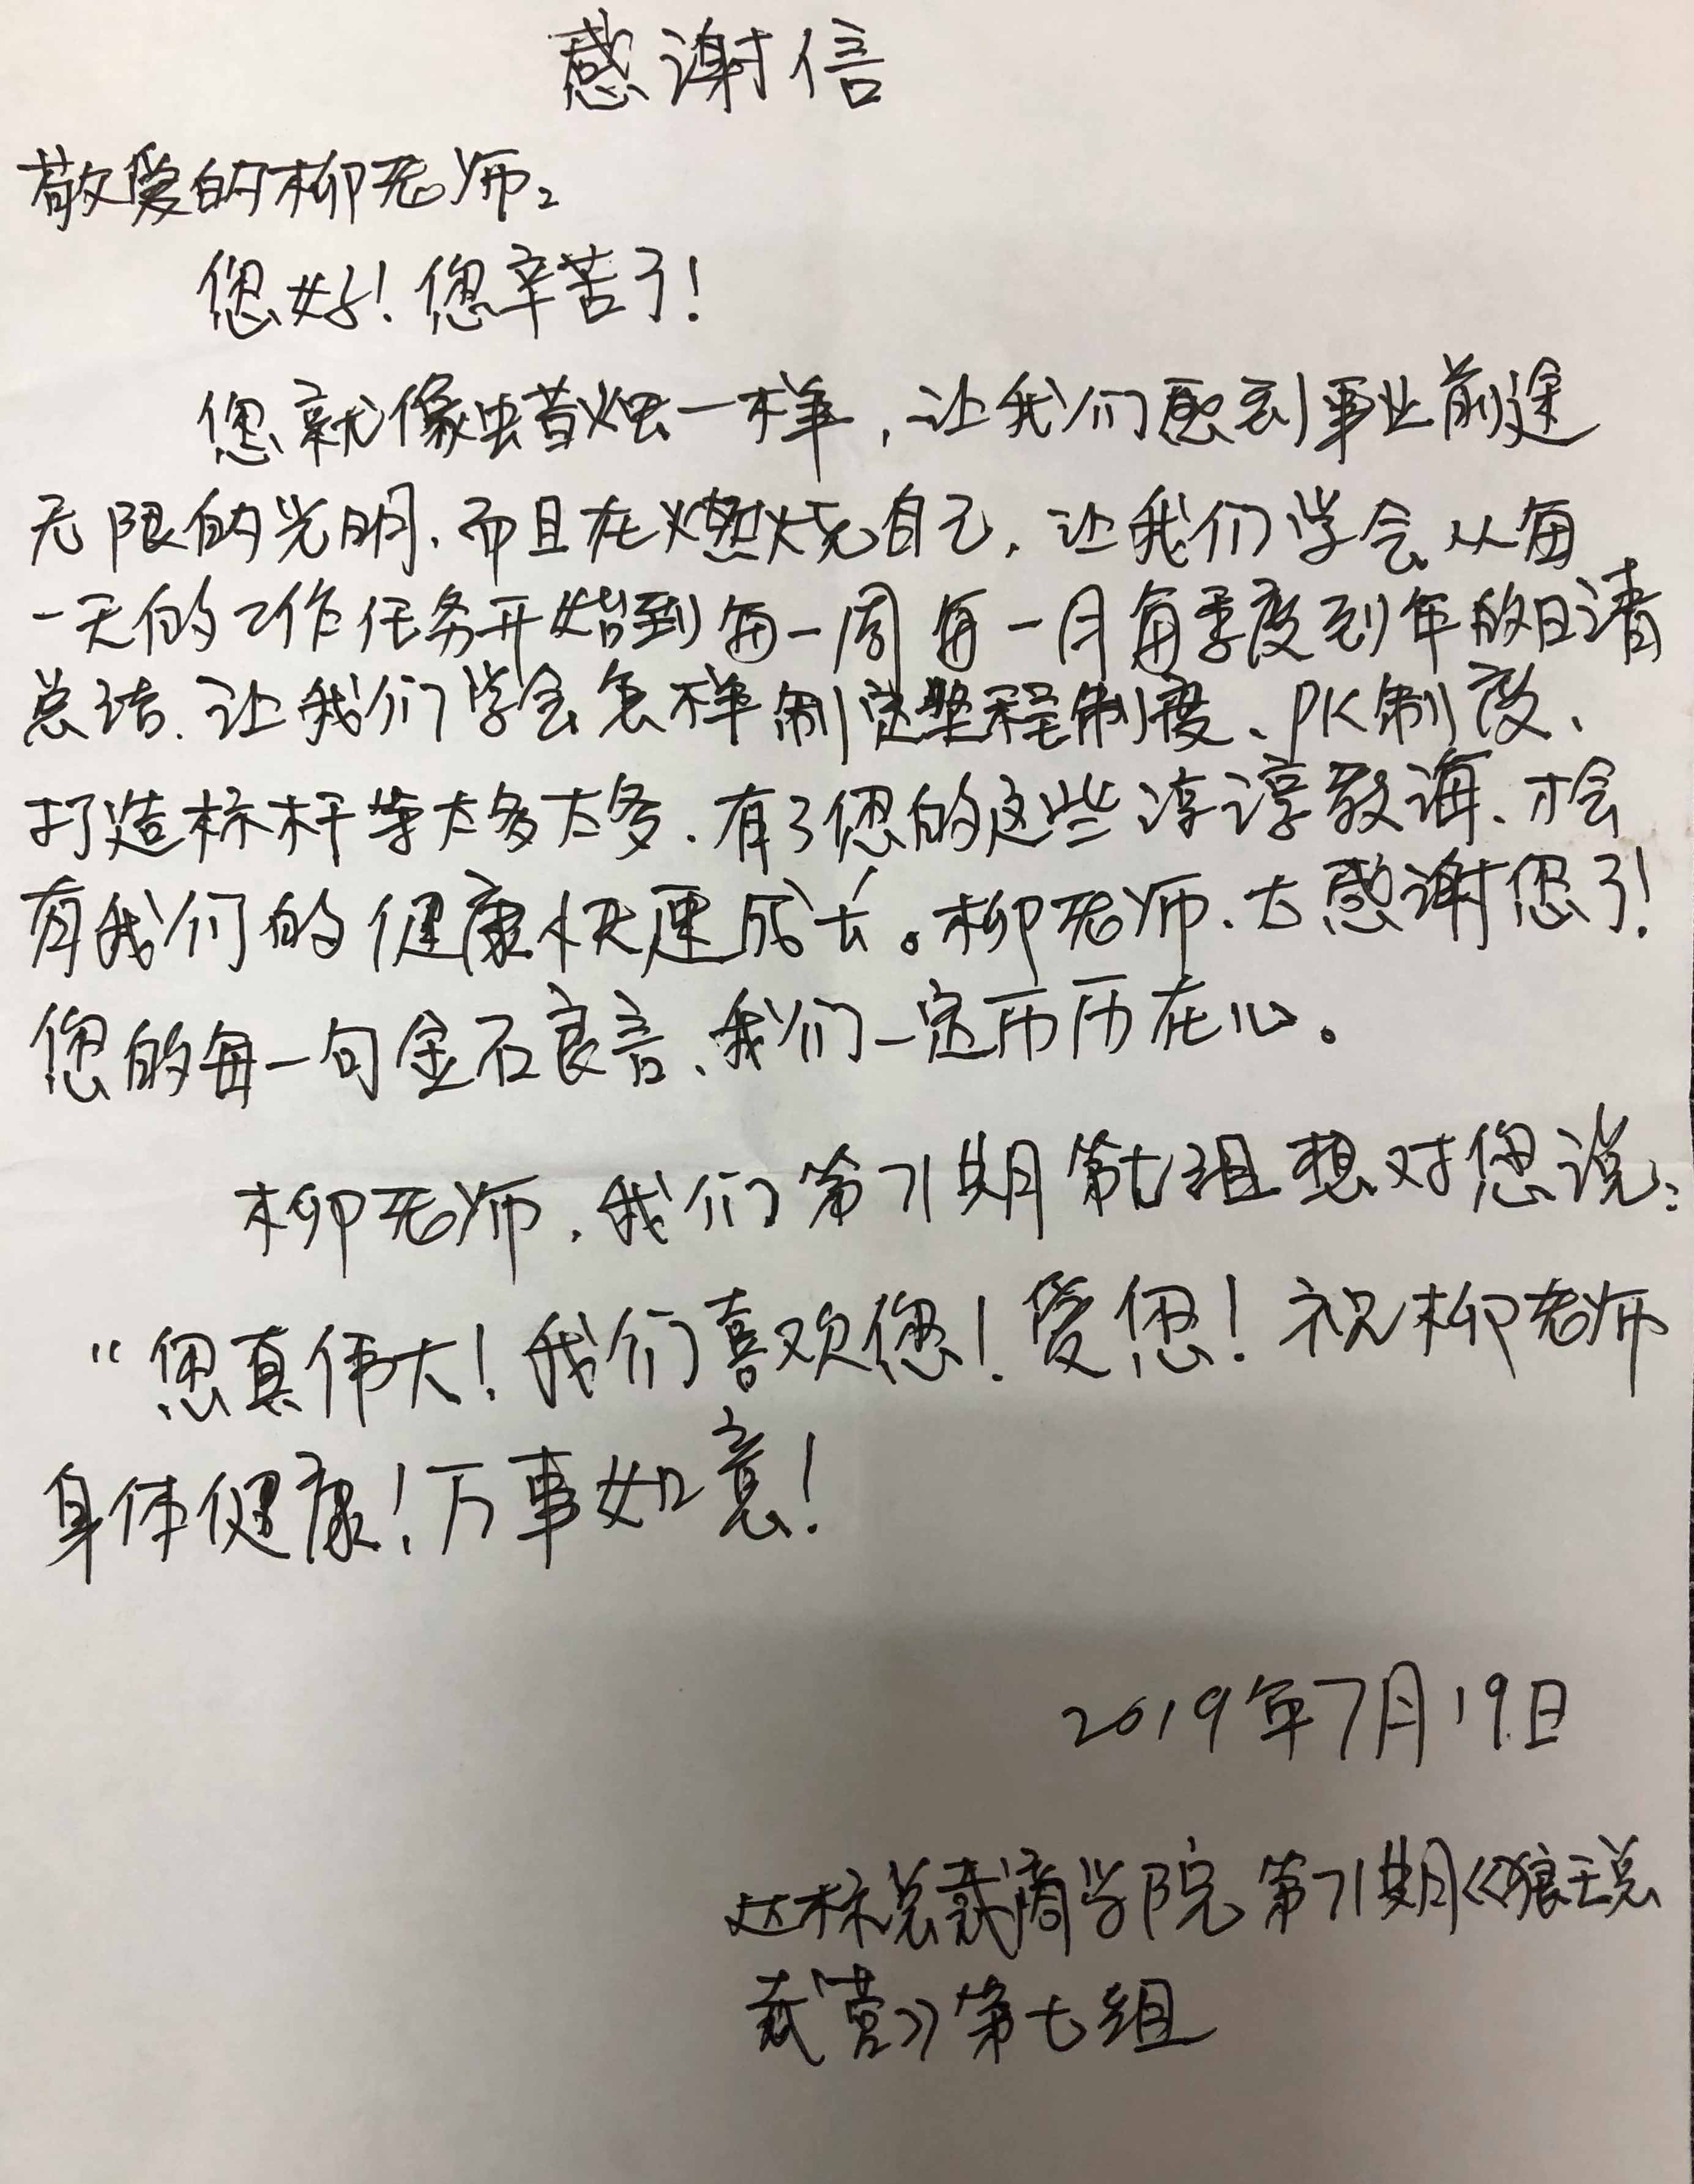 感谢信
敬爱的柳老师：
您好！您辛苦了！
您就像蜡烛一样，让我们感到事业前途
无限的光明，而且在燃烧自己，让我们学会从每
一天的工作任务开始到每一周每一月每季度到年的日清
总结，让我们学会怎样制定整程制度、PK制度、
打造标杆等太多太多，有了您的这些谆谆教诲，才会
有我们的健康快速成长。柳老师，太感谢您了！
您的每一句金石良言，我们一定历历在心。
柳老师，我们第71期第七组想对您说：
“您真伟大！我们喜欢您！爱您！祝柳老师
身体健康！万事如意！
2019年7月19日
达标总裁商学院第71期《狼王总
裁营》第七组